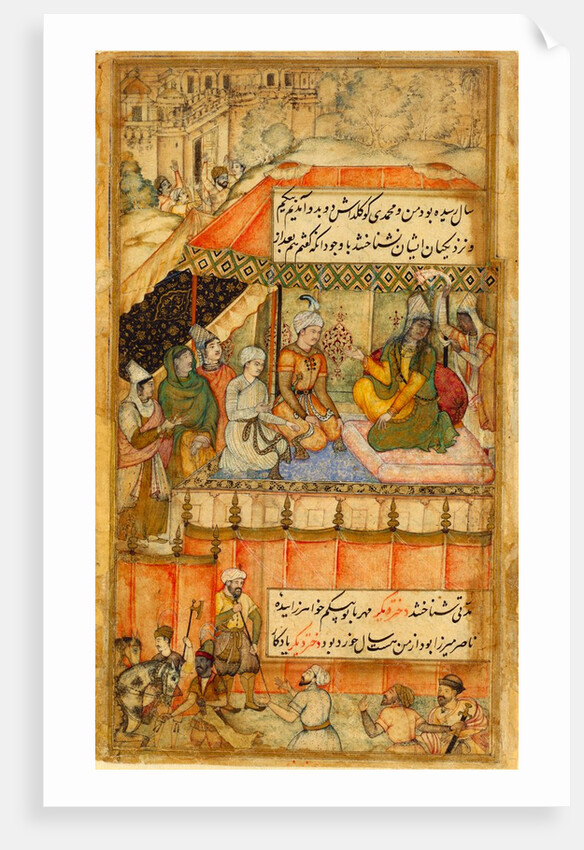 سال رسیده بود من و محمدی کوکلداش دو بدو آمدیم بیکیم
و نزدیکیان ایشان نشناختند با وجود آنکه گفتم هم بعد از
مدتی شناختند دختر دیگر مهربانو بیکم خواهر زاییده
ناصر میرزا بود از من هشت سال خورد بود دختر دیگر یادکار